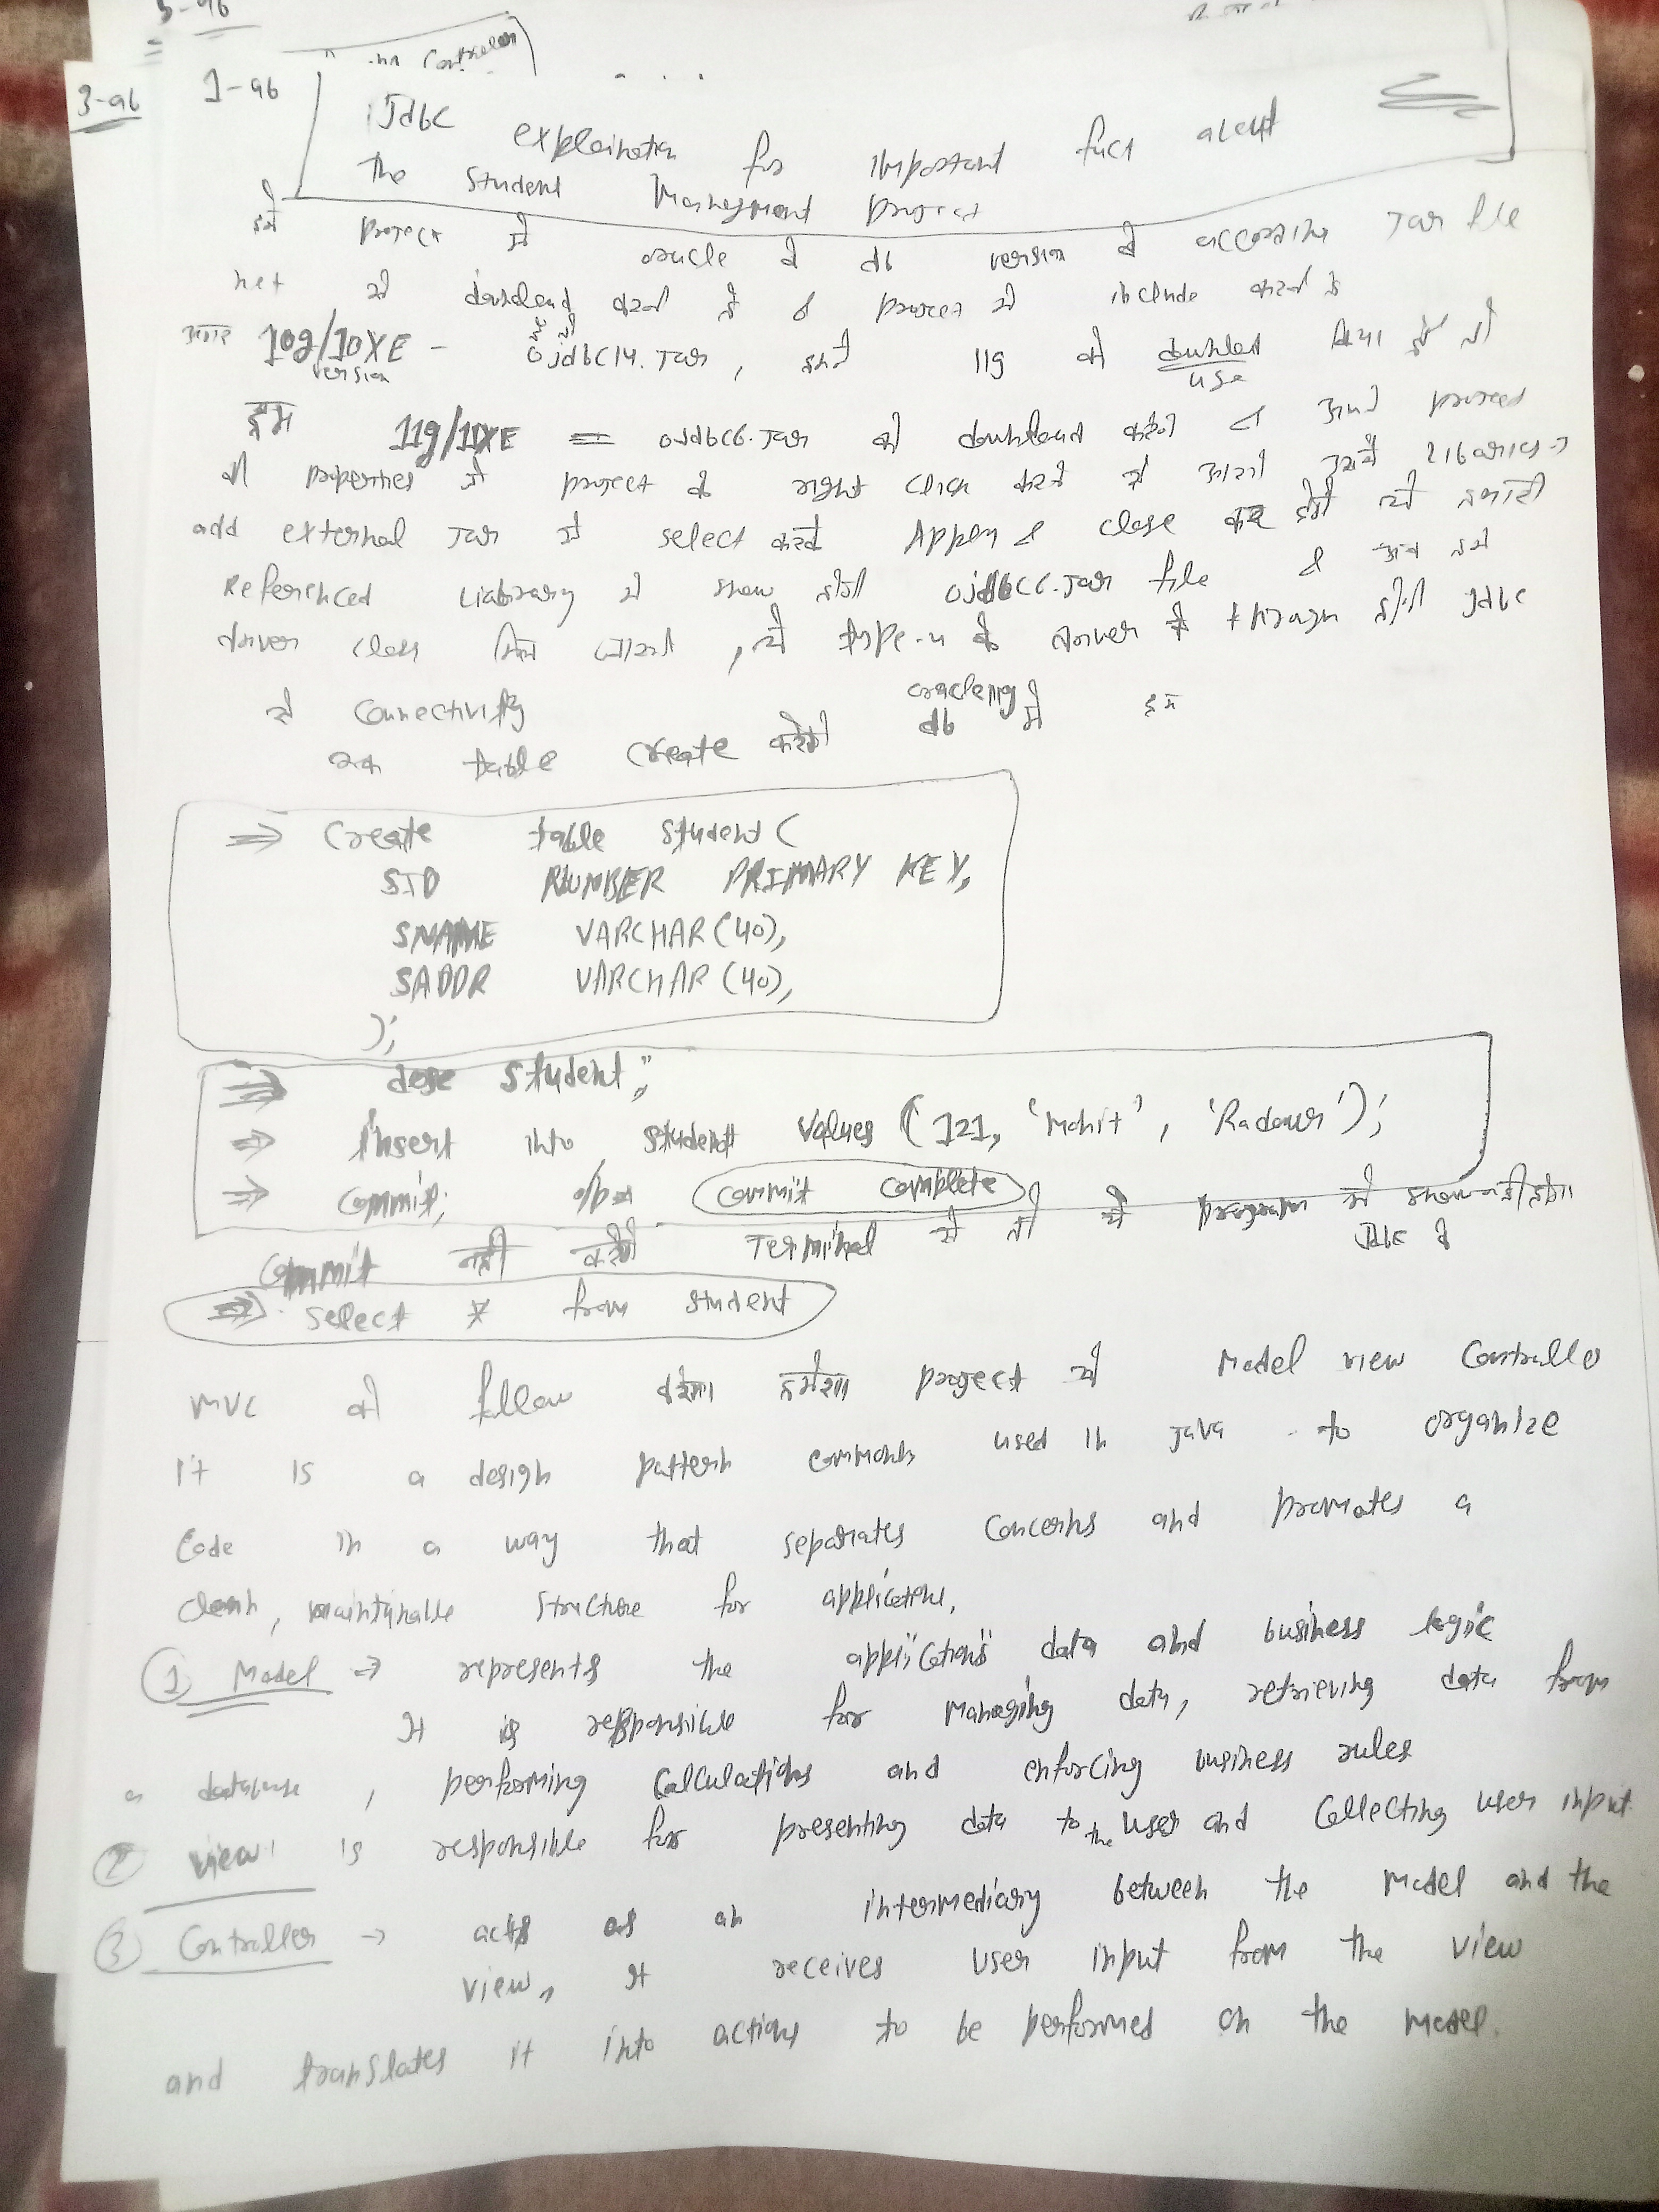 3-96
1-96
Jdbc explaination for important fact about
The Student Managment project
इस project में oracle के db version के according Jar file
net से download करते है & project में include करते है
अगर 10g/10XE - ojdbc14.Jar, हमने 11g को download किया है तो
version
use
हम 11g/11XE = ojdbc6.Jar को download करेंगे & अपने project
की properties में project के right click करने से जाएंगे उसमें Libaries →
add external Jar में select करके Apply & close कर देंगे तो हमारी
Referenced Liabrary में show होगी ojdbc6.Jar file & अब हमें
driver class मिल जाएगी, ये type-4 के driver के through होगी Jdbc
से Connectivity
oracle 11g
एक table create करेंगे db में हम
⇒ Create table Student (
SID NUMBER PRIMARY KEY,
SNAME VARCHAR(40),
SADDR VARCHAR(40),
);
⇒ desc Student;
⇒ Insert into Student values (121, 'Mohit', 'Radaur');
⇒ Commit; o/p → Commit Complete
Commit नहीं करेंगे Terminal से तो ये program में show नहीं होगा
Jdbc के
⇒ Select * from student
MVC को follow करेगा हमेशा project में Model view Controller
it is a design pattern commonly used in Java to organize
Code in a way that separates Concerns and promotes a
clean, maintainable structure for applications.
① Model → represents the application's data and business logic
It is responsible for managing data, retrieving data from
a database, performing Calculations and enforcing business rules
② View is responsible for presenting data to the user and Collecting user input
③ Controller → acts as an intermediary between the model and the
view, It receives user input from the view
and translates it into actions to be performed on the model.